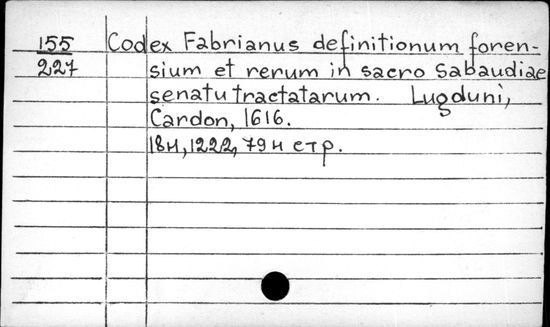 155 Codex Fabrianus definitionum foren-
227 sium et rerum in sacro Sabaudiae
senatu tractatarum. Lugduni,
Cardon, 1616.
18н, 1222, 79н стр.